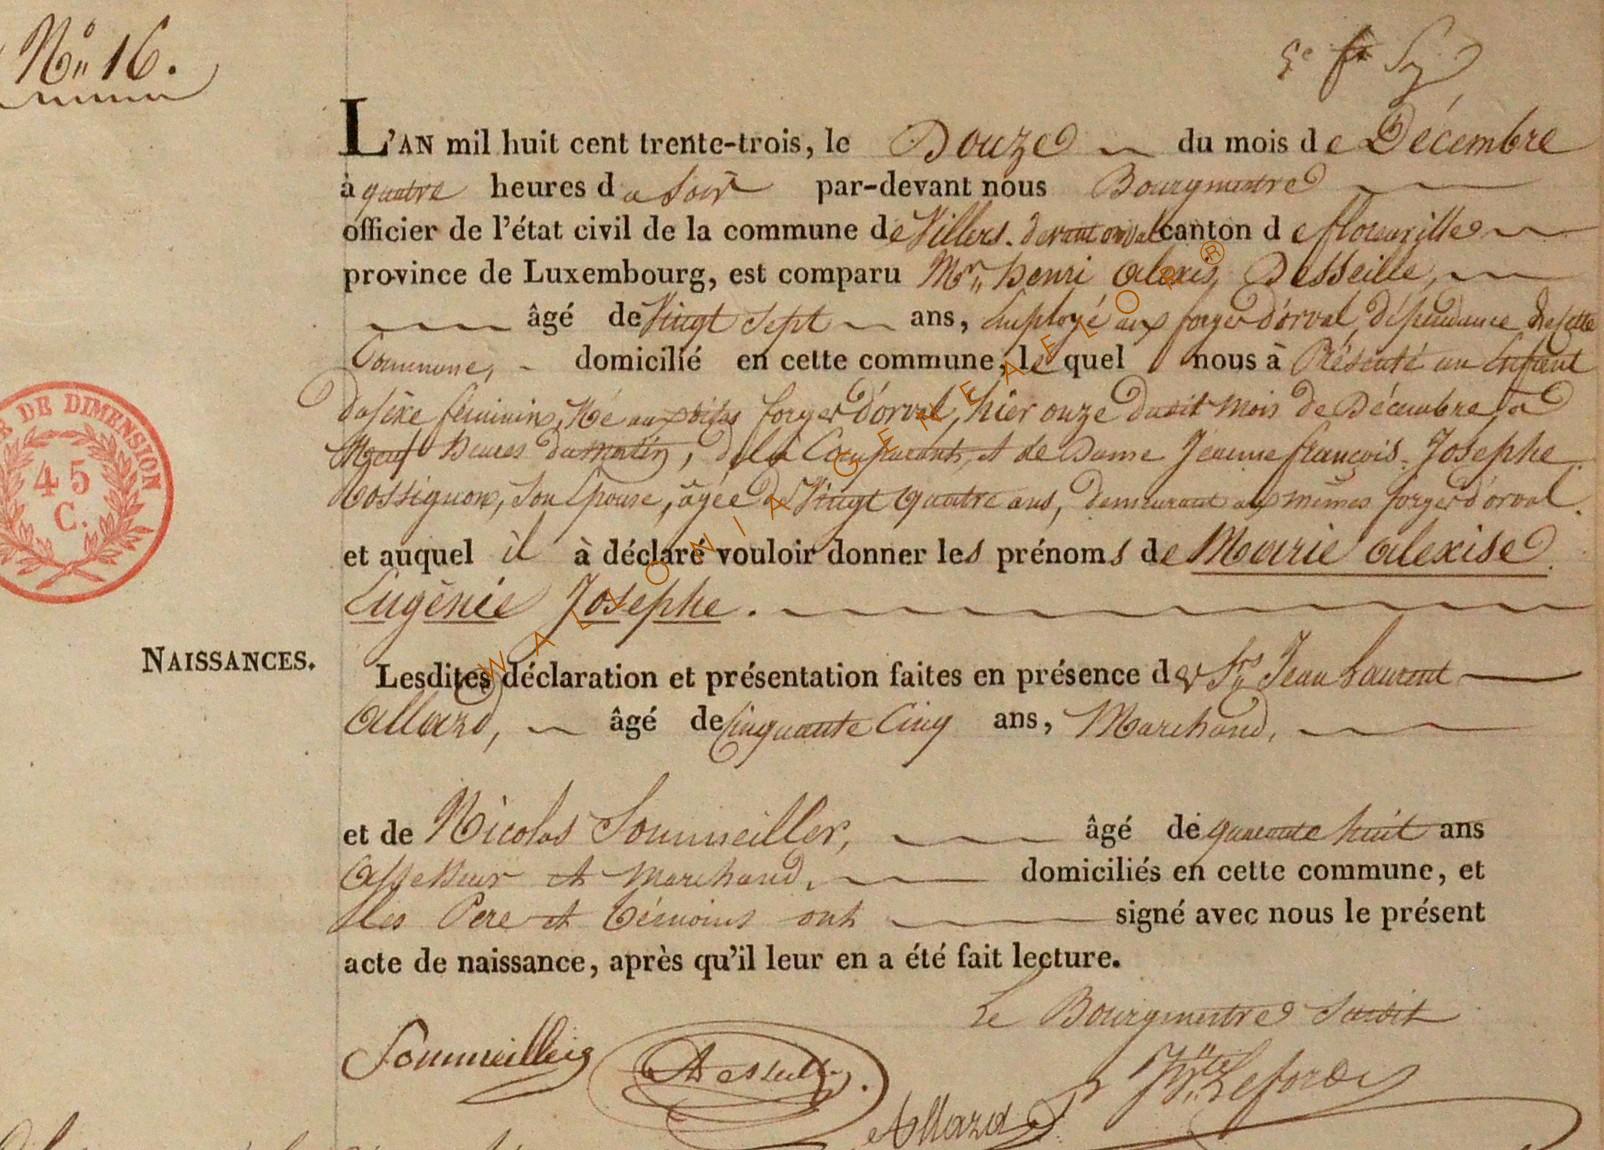 N° 16.
L'AN mil huit cent trente-trois, le Douze du mois de Décembre
à quatre heures du Soir par-devant nous Bourgmestre
officier de l'état civil de la commune de Villers-devant orval canton de florenville
province de Luxembourg, est comparu Mr. henri alexis Desseille,
âgé de Vingt Sept ans, Employé aux forges d'orval, dépendance de cette
Commune, domicilié en cette commune, lequel nous à Présenté un Enfant
du sexe féminin, Né aux dites forges d'orval, hier onze dudit mois de Décembre, à
Neuf heures du matin, de lui Comparant, et de Dame Jeanne françois Josephe
Rossignon, Son Epouse, âgée de Vingt quatre ans, demeurant aux mêmes forges d'orval.
et auquel il à déclaré vouloir donner les prénoms de Marie alexise
Eugénie Josephe.
NAISSANCES.
Lesdites déclaration et présentation faites en présence de Srs Jean Laurent
Allard, âgé de Cinquante Cinq ans, Marchand,
et de Nicolas Sommeiller, âgé de quarante huit ans
Assesseur et Marchand, domiciliés en cette commune, et
les Pere et témoins ont signé avec nous le présent
acte de naissance, après qu'il leur en a été fait lecture.
Le Bourgmestre Susdit
Sommeiller
ADesseille
Allard
E DE DIMENSION
45
C.
© WALLONIA GENEALOR ®